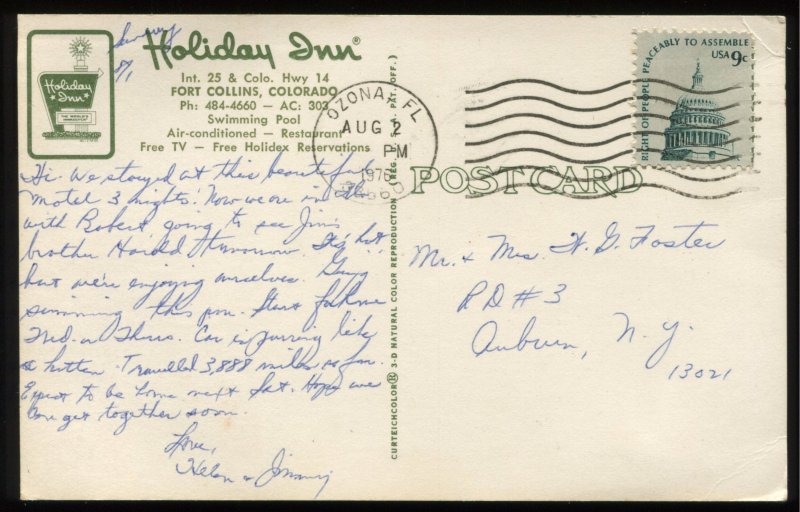 Sunday
8/1
Holiday Inn®
Int. 25 & Colo. Hwy 14
FORT COLLINS, COLORADO
Ph: 484-4660 — AC: 303
Swimming Pool
Air-conditioned — Restaurant
Free TV — Free Holidex Reservations
Holiday Inn
THE WORLD'S INNKEEPER
Hi. We stayed at this beautiful
Motel 3 nights. Now we are in
with Robert, going to see Jim's
brother Harold tomorrow. It's hot
but we're enjoying ourselves. Going
swimming this pm. Start for home
Wed. or Thurs. Car is purring like
a kitten. Travelled 3,888 miles so far.
Expect to be home next Sat. Hope we
can get together soon.
Love,
Helen & Jimmy
CURTEICHCOLOR® 3-D NATURAL COLOR REPRODUCTION (REG. U.S.A. PAT. OFF.)
OZONA, FL
AUG 2
PM
1976
RIGHT OF PEOPLE PEACEABLY TO ASSEMBLE
USA 9c
POST CARD
Mr. & Mrs. H. G. Foster
RD #3
Auburn, N.Y.
13021